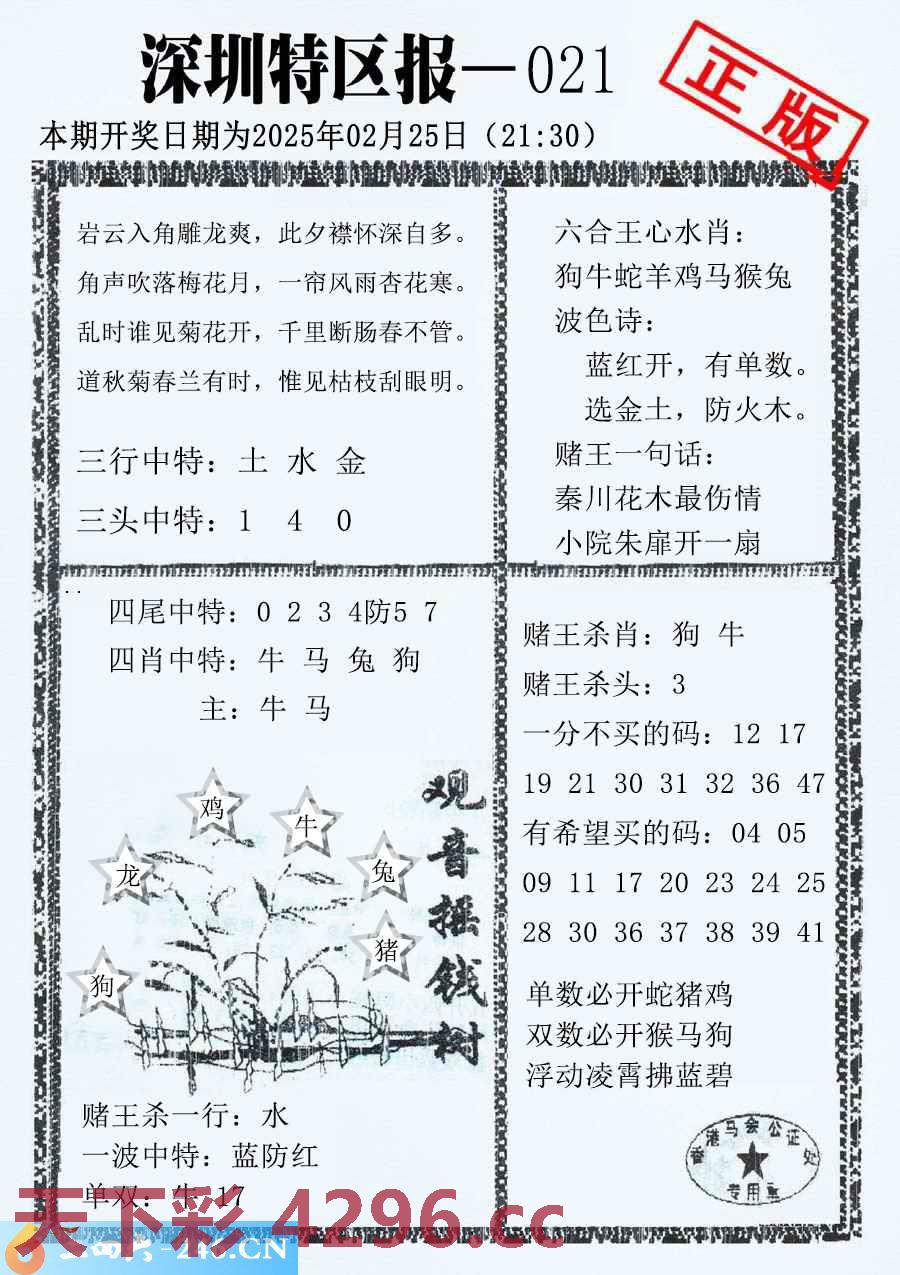 深圳特区报—021
正版
本期开奖日期为2025年02月25日（21:30）
岩云入角雕龙爽，此夕襟怀深自多。
角声吹落梅花月，一帘风雨杏花寒。
乱时谁见菊花开，千里断肠春不管。
道秋菊春兰有时，惟见枯枝刮眼明。
三行中特：土 水 金
三头中特：1 4 0
六合王心水肖：
狗牛蛇羊鸡马猴兔
波色诗：
蓝红开，有单数。
选金土，防火木。
赌王一句话：
秦川花木最伤情
小院朱扉开一扇
四尾中特：0 2 3 4防5 7
四肖中特：牛 马 兔 狗
主：牛 马
鸡
牛
龙
兔
猪
狗
观音摇钱树
赌王杀一行：水
一波中特：蓝防红
单双：牛 17
赌王杀肖：狗 牛
赌王杀头：3
一分不买的码：12 17
19 21 30 31 32 36 47
有希望买的码：04 05
09 11 17 20 23 24 25
28 30 36 37 38 39 41
单数必开蛇猪鸡
双数必开猴马狗
浮动凌霄拂蓝碧
香港马会公证处
专用章
天下彩 4296.cc
246.CN